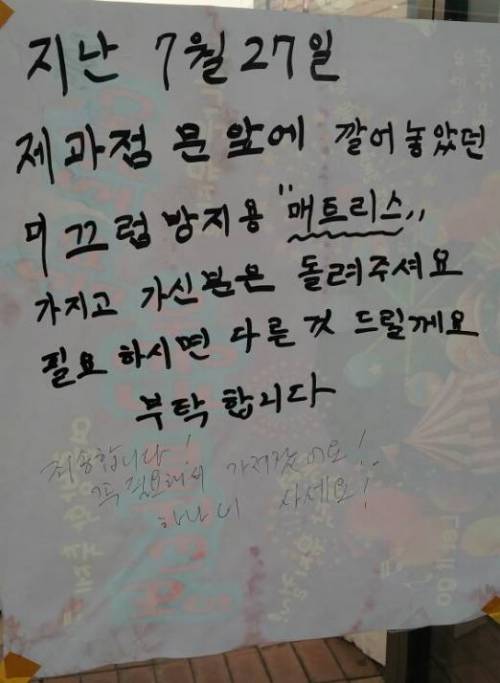 지난 7월 27일
제과점 문앞에 깔어놓았던
미끄럼방지용 "매트리스"
가지고 가신분은 돌려주셔요
필요하시면 다른것 드릴께요
부탁합니다
죄송합니다!
꼭 필요해서 가져갔어요!
하나 더 사세요!